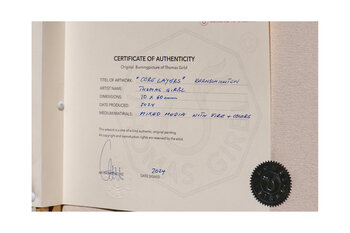 CERTIFICATE OF AUTHENTICITY
Original Burningpicture of Thomas Girbl
TITEL OF ARTWORK: "CORE LAYERS"
ARTIST NAME: THOMAS GIRBL
DIMENSIONS: 70 x 60 mm
DATE PRODUCED: 2024
MEDIUM/MATERIALS: MIXED MEDIA WITH FIRE + COLORS
This artwork is a one of a kind authentic original painting.
All copyright and reproduction rights are reserved by the artist.
2024
DATE SIGNED